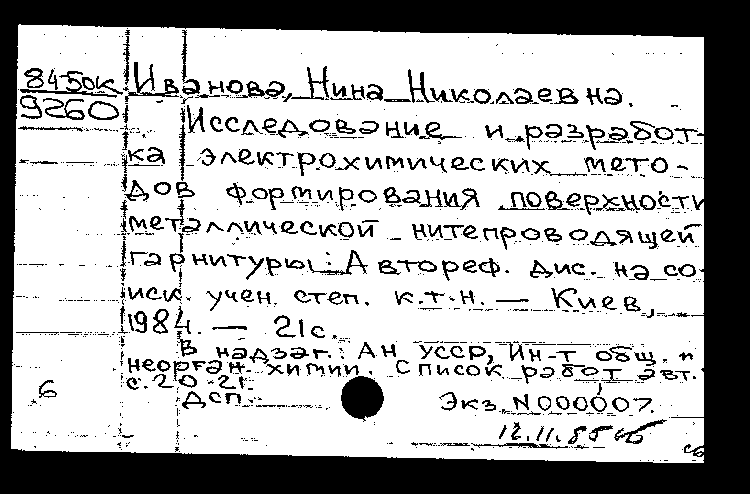 8450к Иванова, Нина Николаевна.
9260
Исследование и разработ-
ка электрохимических мето-
дов формирования поверхности
металлической нитепроводящей
гарнитуры: Автореф. дис. на со-
иск. учен. степ. к.т.н. — Киев,
1984. — 21с.
В надзаг.: АН УССР, Ин-т общ. и
неорган. химии. Список работ авт.:
с. 20-21.
6
Дсп. Экз. N000007.
12.11.85